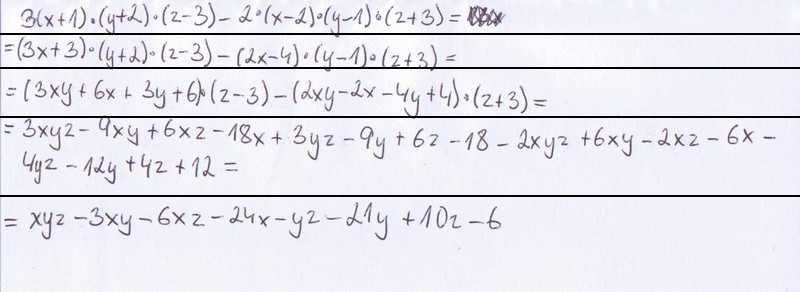 3(x+1)•(y+2)•(z-3) - 2•(x-2)•(y-1)•(z+3) =
=(3x+3)•(y+2)•(z-3) - (2x-4)•(y-1)•(z+3) =
=(3xy+6x+3y+6)•(z-3) - (2xy-2x-4y+4)•(z+3) =
= 3xyz - 9xy + 6xz - 18x + 3yz - 9y + 6z - 18 - 2xyz + 6xy - 2xz - 6x -
4yz - 12y + 4z + 12 =
= xyz - 3xy - 6xz - 24x - yz - 21y + 10z - 6